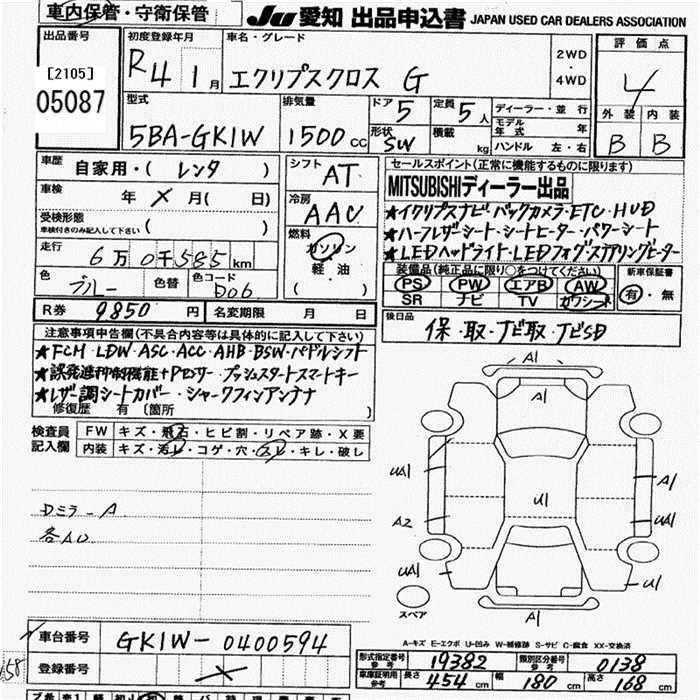 車内保管・守衛保管
JU 愛知 出品申込書 JAPAN USED CAR DEALERS ASSOCIATION
出品番号
[2105]
05087
初度登録年月
R4 1月
車名・グレード
エクリプスクロス G
2WD
・
4WD
評価点
4
外装 内装
B B
型式
5BA-GK1W
排気量
1500cc
ドア 5
形状 SW
定員 5人
積載 kg
ディーラー・並行
モデル年式 年
ハンドル 左・右
車歴
自家用・( レンタ )
車検
年 × 月( 日)
受検形態
車検付きのみ記入して下さい ( )
走行
6万0千585km
色
ブルー
色替
色コード
D06
シフト
AT
冷房
AAC
燃料
ガソリン
軽油
( )
セールスポイント(正常に機能するものに限ります)
MITSUBISHIディーラー出品
★イクリプスナビ・バックカメラ・ETC・HUD
★ハーフレザーシート・シートヒーター・パワーシート
★LEDヘッドライト・LEDフォグ・ステアリングヒーター
装備品(純正品に限り○をつけてください)
PS PW エアB AW
SR ナビ TV カワシート
新車保証書
有・無
R券 9850円
名変期限 月 日
後日品
保・取・ナビ取・ナビSD
注意事項申告欄(不具合内容等は具体的に記入して下さい)
★FCM・LDW・ASC・ACC・AHB・BSW・パドルシフト
★誤発進抑制機能+Pセンサー・プッシュスタートスマートキー
★レザー調シートカバー・シャークフィンアンテナ
修復歴 有 〔箇所 〕
検査員記入欄
FW キズ・飛石・ヒビ割・リペア跡・X要
内装 キズ・汚レ・コゲ・穴・スレ・キレ・破レ
Dミラ-A
各AU
A1
A1
UA1
A2
UA1
U1
A1
UA1
U1
A1
スペア
A-キズ E-エクボ U-凹み W-補修跡 S-サビ C-腐食 XX-交換済
車台番号
GK1W-0400594
58
登録番号
×
形式指定番号 参考 19382
類別区分番号 参考 0138
車庫証明用 参考 長さ 454cm 幅 180cm 高さ 168cm